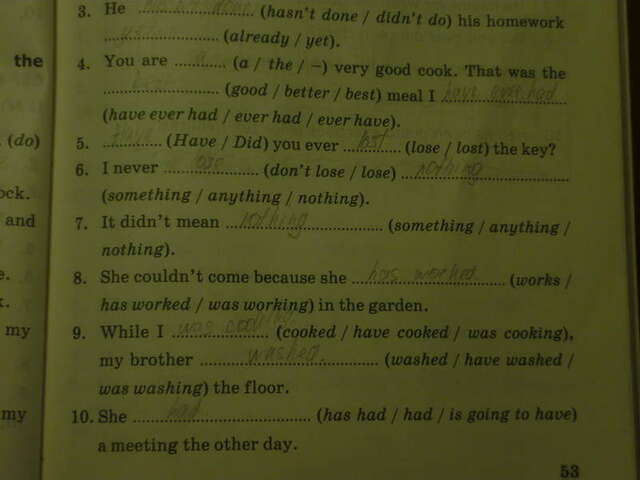 3. He .................... (hasn't done / didn't do) his homework
.................... (already / yet).
the
4. You are ..a.. (a / the / –) very good cook. That was the
.................... (good / better / best) meal I have ever had
(have ever had / ever had / ever have).
(do)
5. Have (Have / Did) you ever lost (lose / lost) the key?
6. I never .......... (don't lose / lose) nothing
ock.
(something / anything / nothing).
and
7. It didn't mean nothing (something / anything /
nothing).
e.
8. She couldn't come because she has worked (works /
has worked / was working) in the garden.
my
9. While I was cooking (cooked / have cooked / was cooking),
my brother washed (washed / have washed /
was washing) the floor.
my
10. She had (has had / had / is going to have)
a meeting the other day.
53